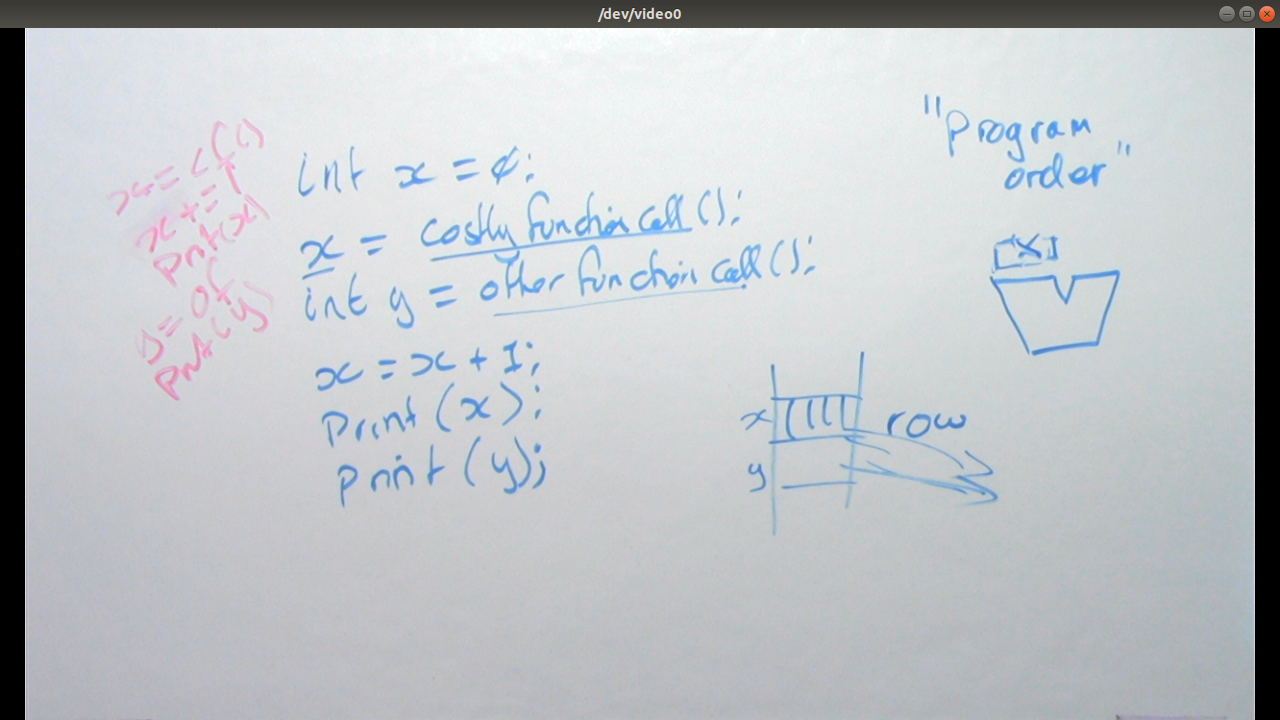 /dev/video0
x = cf()
x += 1
Print(x)
y = of
Print(y)
int x = 0;
x = costly function call ();
int y = other function call ();
x = x + 1;
Print (x);
Print (y);
"Program
order"
[x]
x
row
y